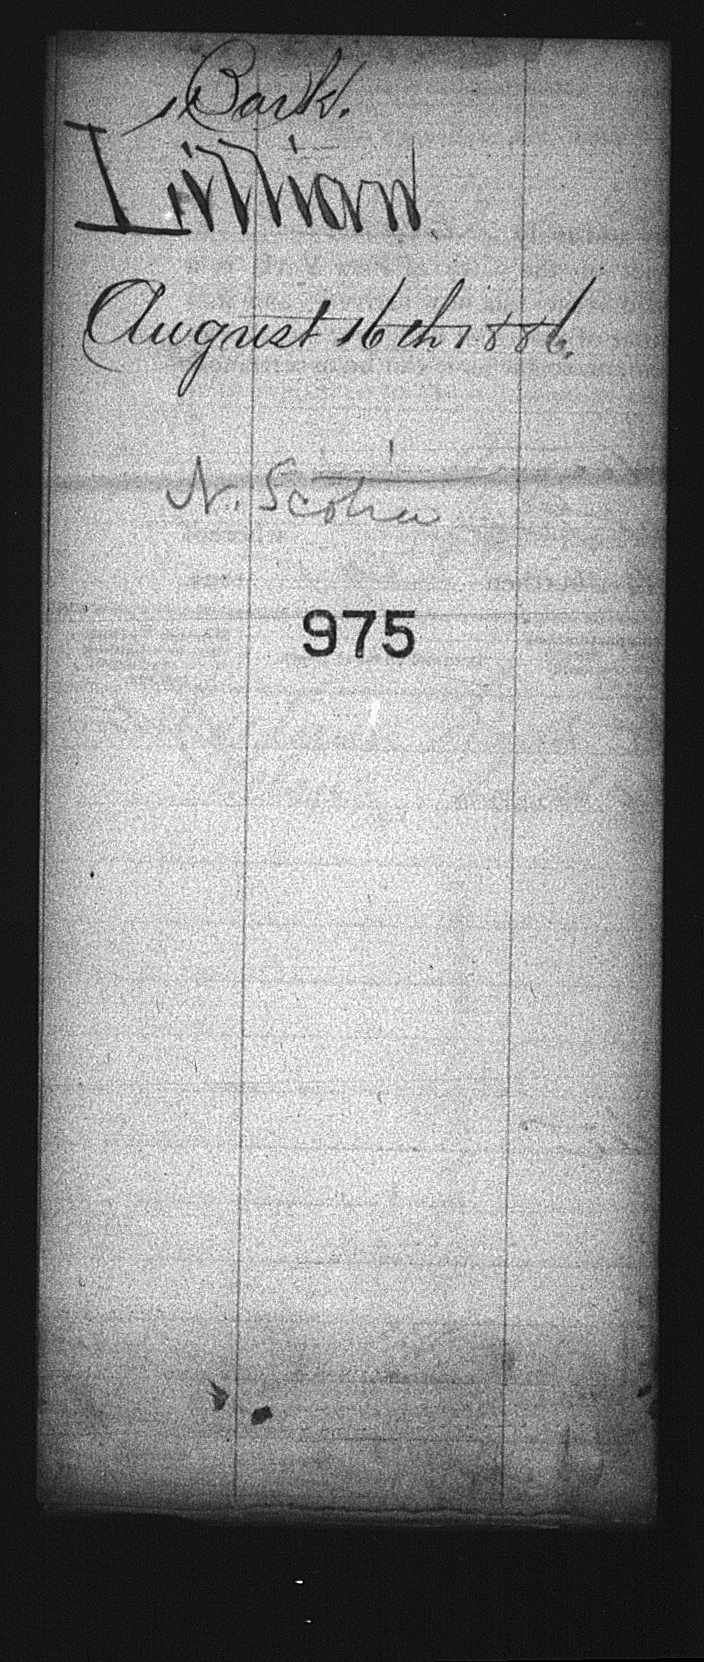 Bark.
Lillian.
August 16th 1886.
N. Scotia
975